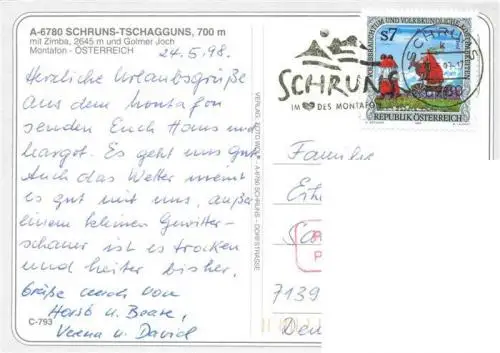 A-6780 SCHRUNS-TSCHAGGUNS, 700 m
mit Zimba, 2645 m und Golmer Joch
Montafon - ÖSTERREICH
24.5.98.
Herzliche Urlaubsgrüße
aus dem Montafon
senden Euch Hans und
Margot. Es geht uns gut.
Auch das Wetter meint
es gut mit uns, außer
einem kleinen Gewitter-
schauer ist es trocken
und heiter bisher.
Grüße auch von
Horst u. Beate,
Verena u. David
C-793
A-6780 SCHRUNS - DORFSTRASSE
SCHRUNS
IM DES MONTAFON
S7
REPUBLIK ÖSTERREICH
Familie
7139